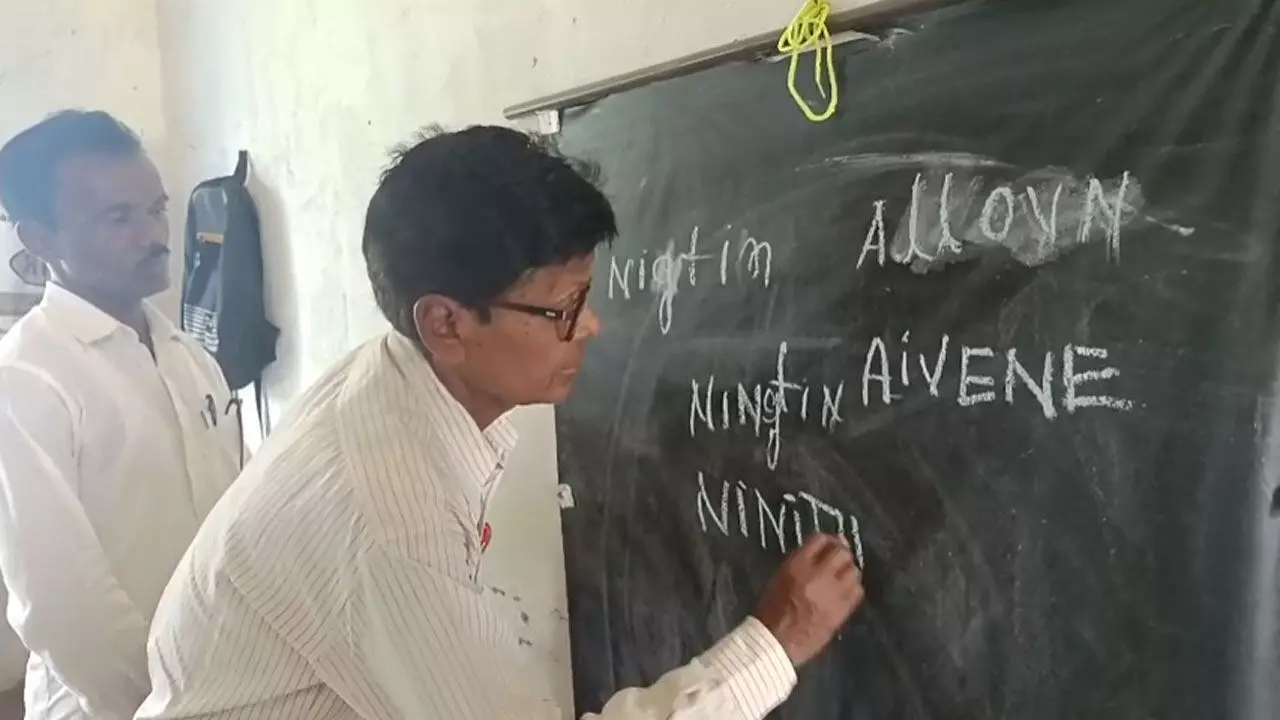 Nigtin Alloyn
Ningtin AiVENE
NiNiTI